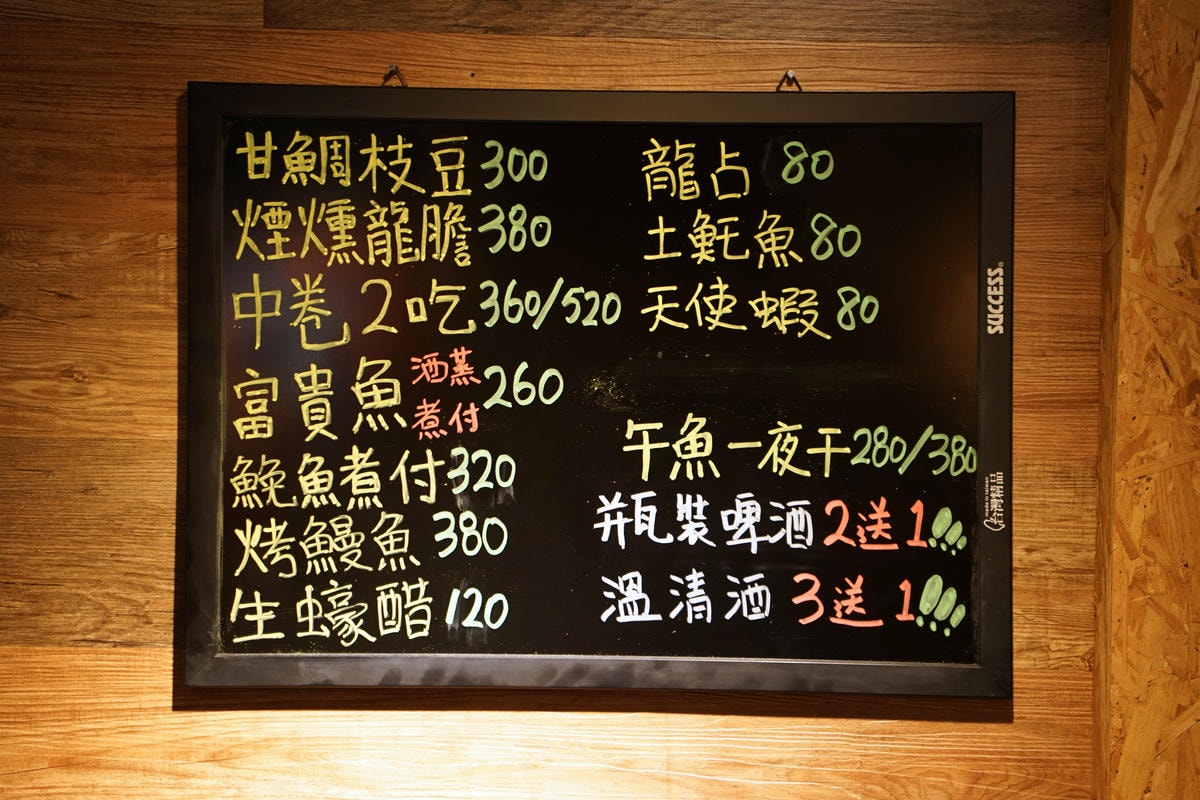 甘鯛枝豆300
煙燻龍膽380
中卷2吃360/520
富貴魚酒蒸煮付260
鮸魚煮付320
烤鰻魚380
生蠔醋120
龍占80
土魠魚80
天使蝦80
午魚一夜干280/380
瓶裝啤酒2送1
溫清酒3送1
SUCCESS®
made in taiwan
台灣精品